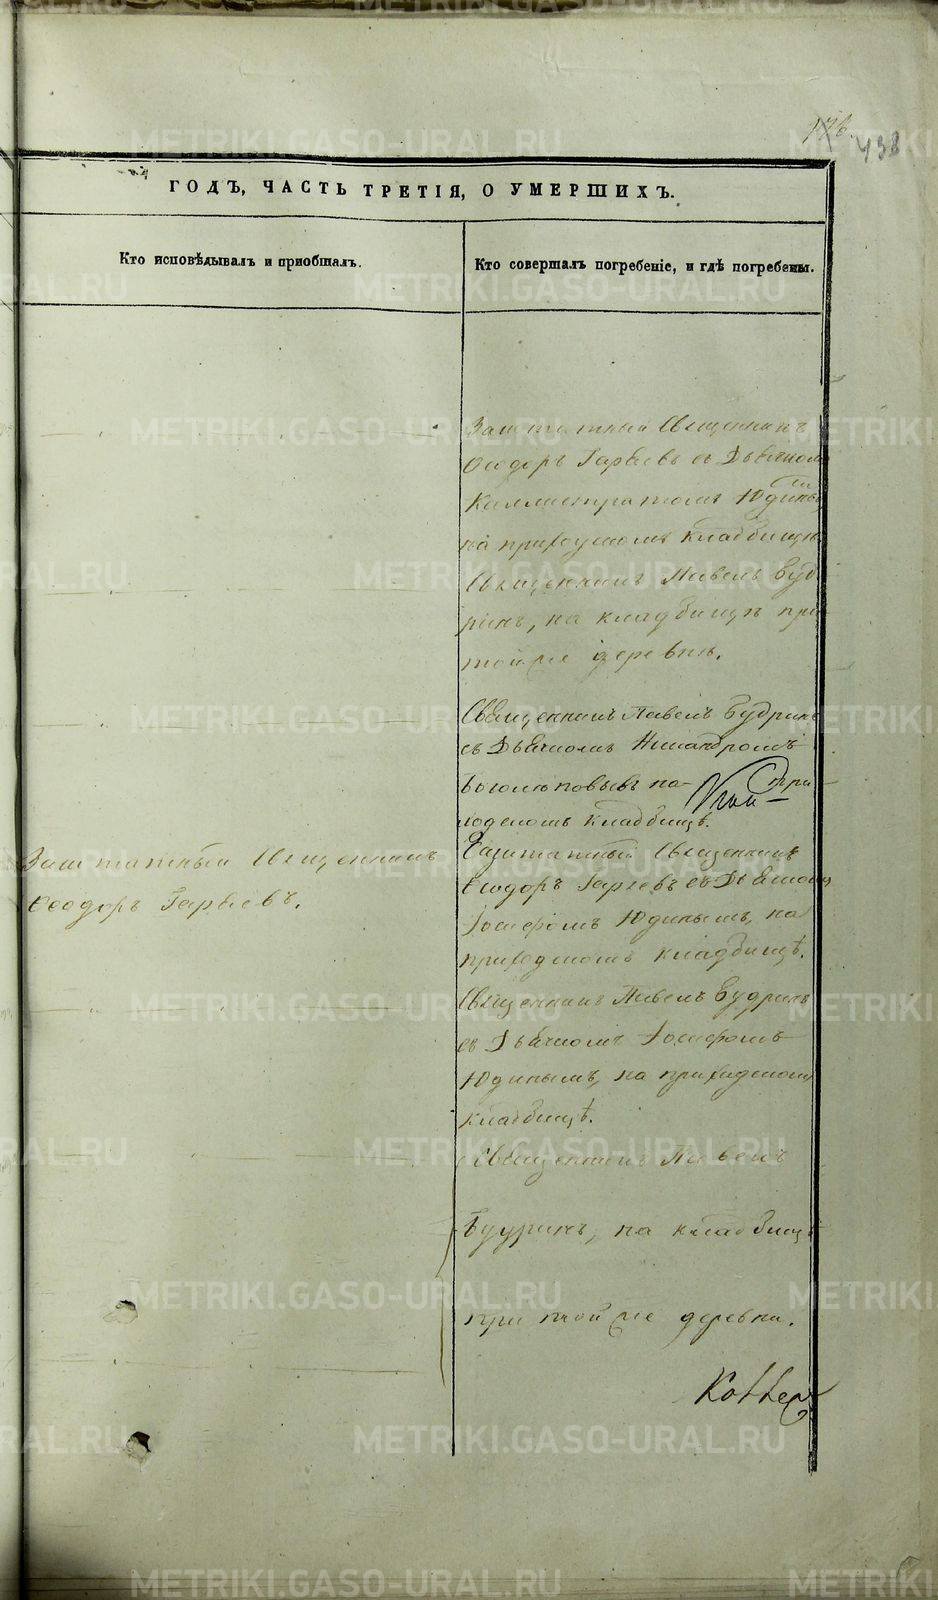 176.
438
ГОДЪ, ЧАСТЬ ТРЕТІЯ, О УМЕРШИХЪ.
Кто исповѣдывалъ и пріобщалъ.
Кто совершалъ погребеніе, и гдѣ погребены.
Заштатный Священникъ
Ѳеодоръ Гаряевъ съ Дьячкомъ
Каллистратомъ Юдинымъ
на приходскомъ кладбищѣ
Священникъ Павелъ Буд-
ринъ, на кладбищѣ при
той же деревнѣ.
Священникъ Павелъ Будринъ
съ Дьячкомъ Никандромъ
на при-
ходскомъ кладбищѣ.
Заштатный Священникъ
Ѳеодоръ Гаряевъ.
Заштатный Священникъ
Ѳеодоръ Гаряевъ съ Дьячкомъ
Іосифомъ Юдинымъ, на
приходскомъ кладбищѣ.
Священникъ Павелъ Будринъ
съ Дьячкомъ Іосифомъ
Юдинымъ, на приходскомъ
кладбищѣ.
Священникъ Павелъ
Будринъ, на кладбищѣ
при той же деревни.
METRIKI.GASO-URAL.RU